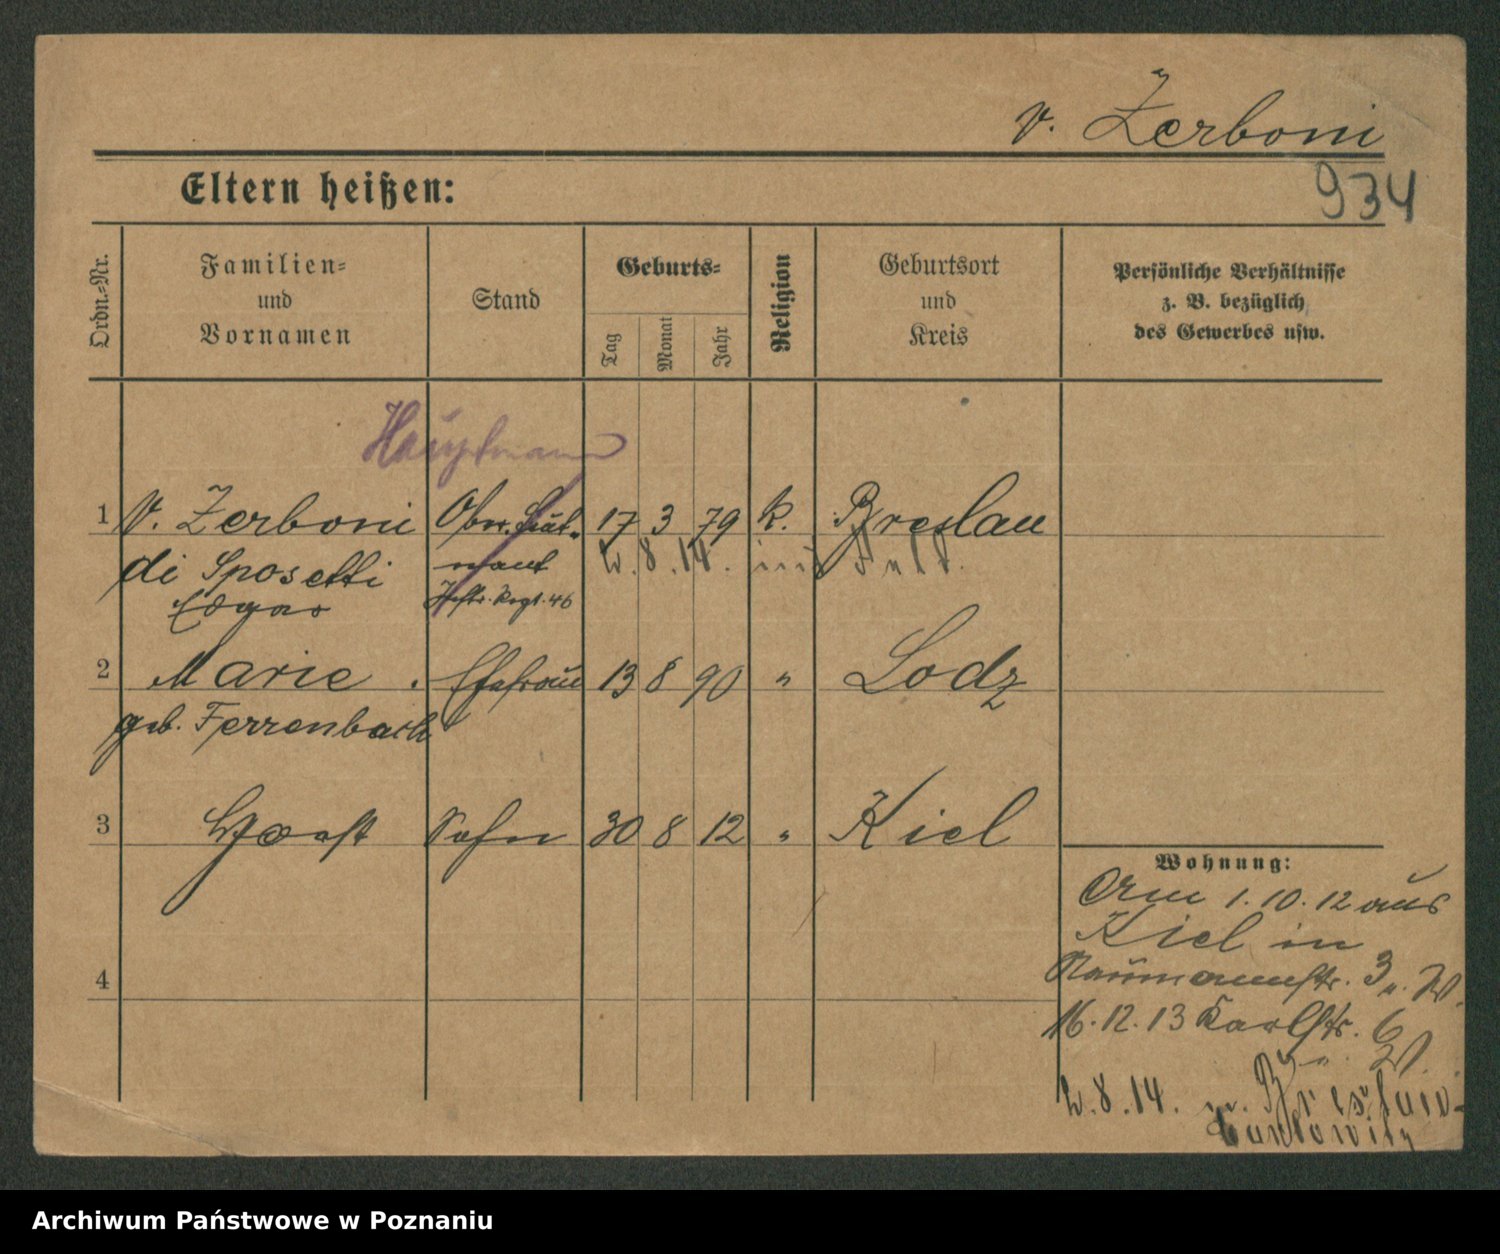 v. Zerboni
934
Eltern heißen:
Ordn.-Nr.
Familien-
und
Vornamen
Stand
Geburts-
Tag
Monat
Jahr
Religion
Geburtsort
und
Kreis
Persönliche Verhältnisse
z. B. bezüglich
des Gewerbes usw.
Hauptmann
1 v. Zerboni Ober-Leut- 17 3 79 k. Breslau
di Sposetti nant 2.8.14. ins Feld.
Edgar Inftr. Regt. 46
2 Marie Ehefrau 13 8 90 " Lodz
geb. Ferrenbach
3 Horst Sohn 30 8 12 " Kiel
4
Wohnung:
Am 1.10.12 aus
Kiel in
Naumannstr. 3 u. W.
16.12.13 Karlstr. 6
u. W.
2.8.14. n. Breslau-
Archiwum Państwowe w Poznaniu